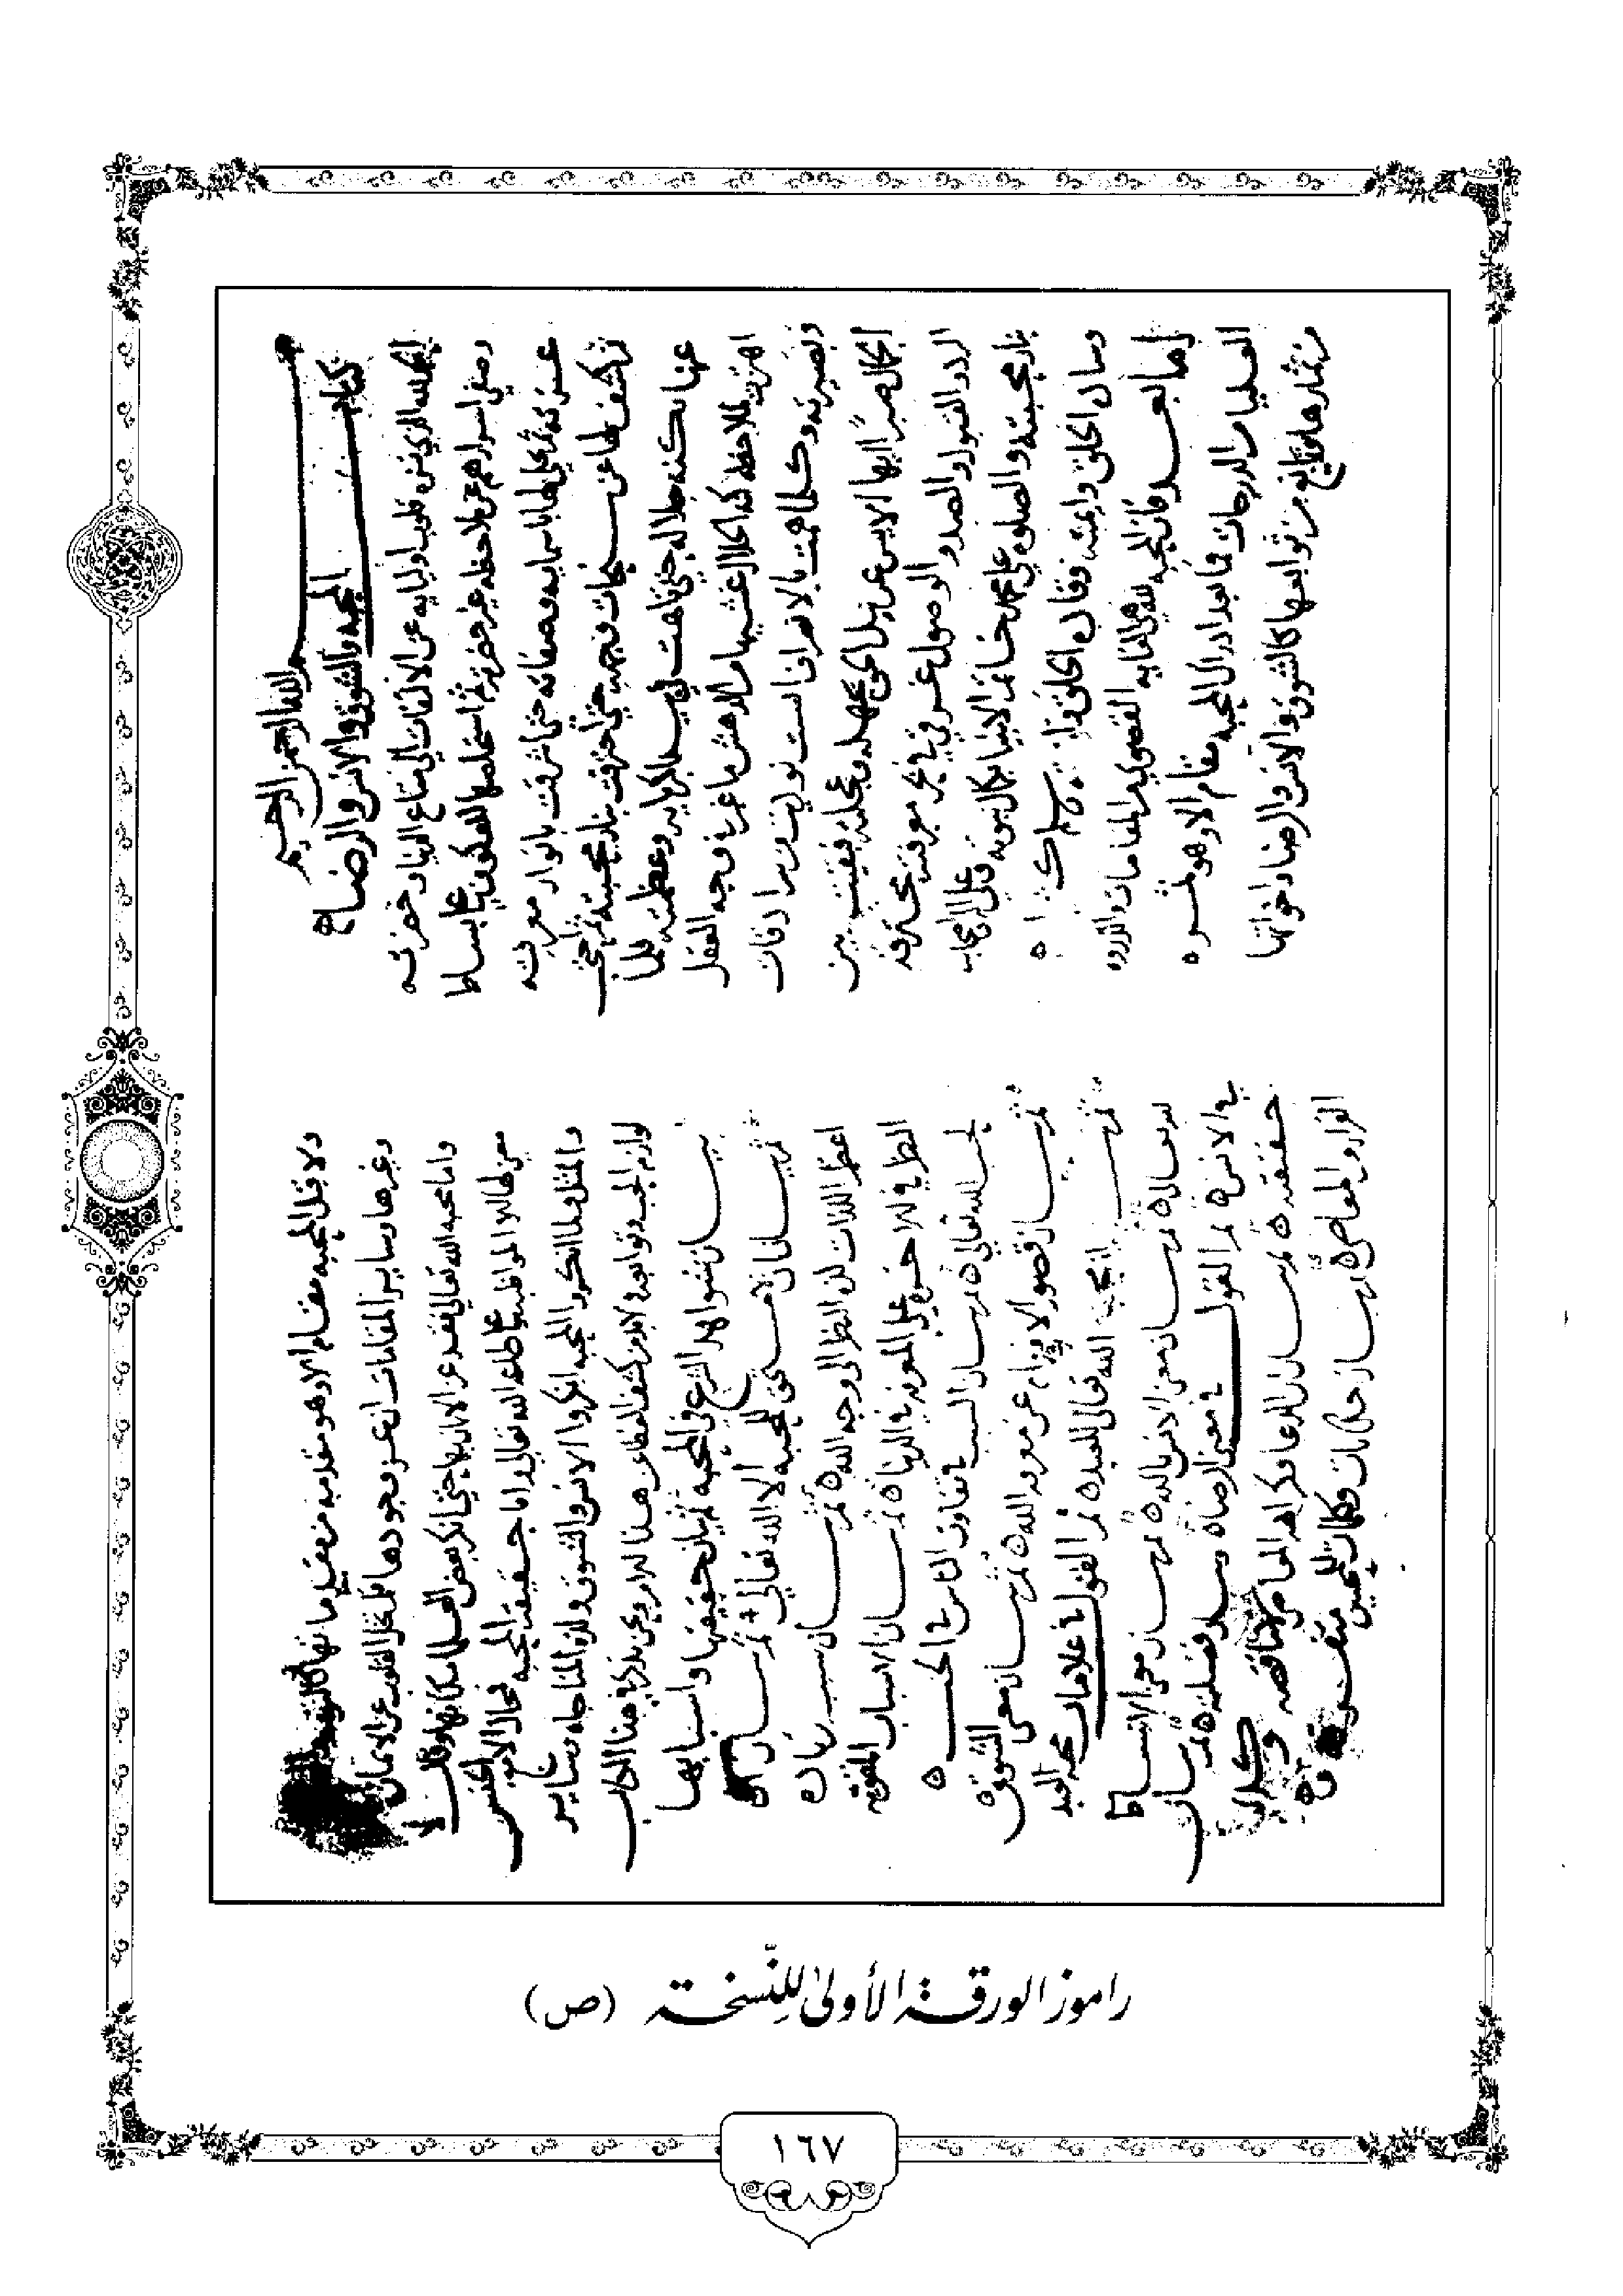 بسم الله الرحمن الرحيم
كتاب المحبه والشوق والانس والرضا
الحمد لله الذي نزه قلوب اوليايه عن الالتفات الي متاع الدنيا و حضرته
وصفي اسرارهم عن ملاحظه غير حضرته ثم استخلصها للعكوف على بساط
عزته ثم تجلي لها باسمايه وصفاته حتى اشرقت بانوار معرفته
ثم كشف لها عن سبحات وجهه حتى احترقت بنار محبته ثم احتجب
عنها بكنه جلاله حتى تاهت في بيدا كبريايه وعظمته فكلما
اهتزت لملاحظه كنه الجلال غشيها من الدهش ما غبر في وجه العقل
وبصيرته وكلما همت بالانصراف ايسه نوديت من سرادقات
الجمال صبرا ايها الايس عن نيل الحق بجهله وعجلته فبقيت بين
الرد والقبول والصد والوصول غرقي في بحر معرفته محترقه
بنار محبته والصلوه علي محمد خاتم الانبيا بكمال نبوته وعلى اله واصحابه
وسادات الخلق وايمته وقاده الحق
اما بعد فان المحبه لله هي الغايه القصوي من المقامات والذروه
العليا من الدرجات فما بعد ادراك المحبه مقام الا وهو ثمره
من ثمارها وتابع من توابعها كالشوق والانس والرضا واخواتها
ولا قبل المحبه مقام الا وهو مقدمه من مقدماتها كالتوبه
وغيرها وساير المقامات ان عز وجودها فلم تخل القلوب عن الايمان
واما محبه الله تعالى فقد عز الايمان بها حتى انكر بعض العلما امكانها وقال لا
معنى لها الا المواظبه على طاعه الله تعالى واما حقيقه المحبه فمحال الا مع الجنس
والمثل ولما انكروا المحبه انكروا الانس والشوق ولذه المناجاه وساير
لوازم الحب وتوابعه ولابد من كشف الغطا عن هذا الامر ونحن نذكر في هذا الكتاب
بيــان شواهد الشرع في المحبه ثم بيان حقيقتها واسبابها
ثم بيــان ان لا مستحق للمحبه الا الله تعالى ثم بيــان ان
اعظم اللذات لذه النظر الى وجه الله ثم بيــان سبب زياده
النظر في الاخره علي المعرفه في الدنيا ثم بيــان الاسباب المقويه
لحب الله تعالى ثم بيــان السبب في تفاوت الناس في الحب
ثم بيــان قصور الافهام عن معرفه الله ثم بيــان معنى الشوق
ثم بيــان محبه الله تعالى للعبد ثم القول في علامات محبه العبد
لله تعالى ثم بيــان معنى الانس بالله ثم بيــان معنى الانبساط
في الانس ثم القول في معنى الرضا وبيــان فضيلته ثم بيــان
حقيقته ثم بيــان ان الدعا وكراهه المعاصي لا تناقضه وكذلك
الفرار من المعاصي ثم بيــان حكايات وكلمات للمحبين متفرقه
راموز الورقة الأولى للنسخة (ص)
١٦٧